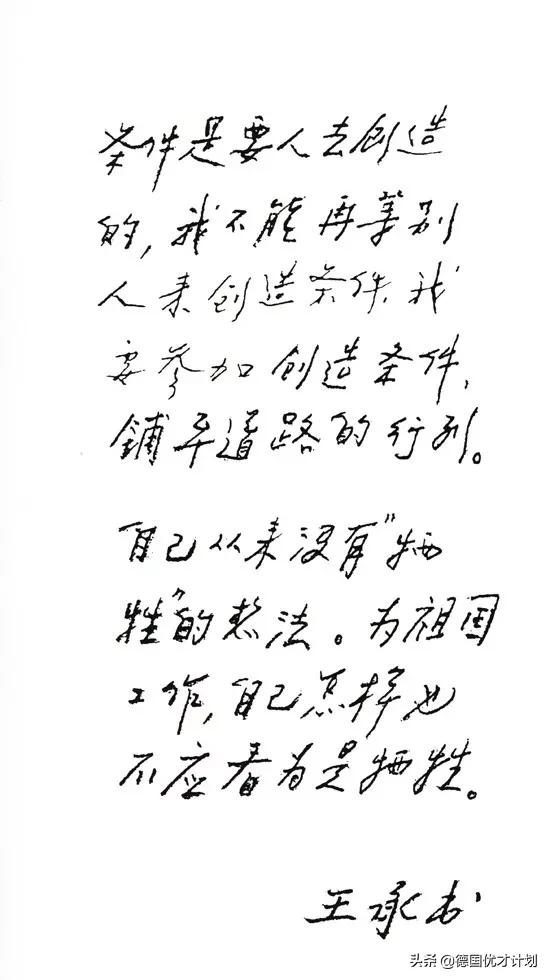 条件是要人去创造
的，我不能再等别
人来创造条件，我
要参加创造条件，
鋪平道路的行列。
自己从来没有“牺
牲”的想法。为祖国
工作，自己怎样也
不应看为是牺牲。
王承书
头条 @德国优才计划